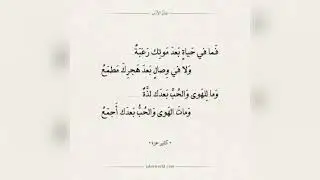 فَما في حَياةٍ بَعدَ مَوتِكِ رَغبَةٌ
وَلا في وِصالٍ بَعدَ هَجرِكِ مَطمَعُ
وَما لِلهَوى وَالحُبِّ بَعدَكِ لَذَّةٌ
وَماتَ الهَوى وَالحُبُّ بَعدَكِ أَجمَعُ
• كثير عزة •